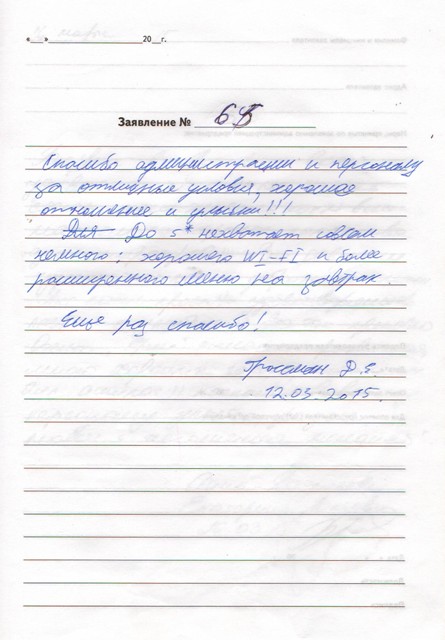 «__»____________20__г.
Заявление № 65
Спасибо администрации и персоналу
за отличные условия, хорошее
отношение и улыбки!!!
Для До 5* нехватает совсем
немного: хорошего WI-FI и более
расширенного меню на завтрак.
Еще раз спасибо!
Гроссман Д.Е.
12.03.2015.